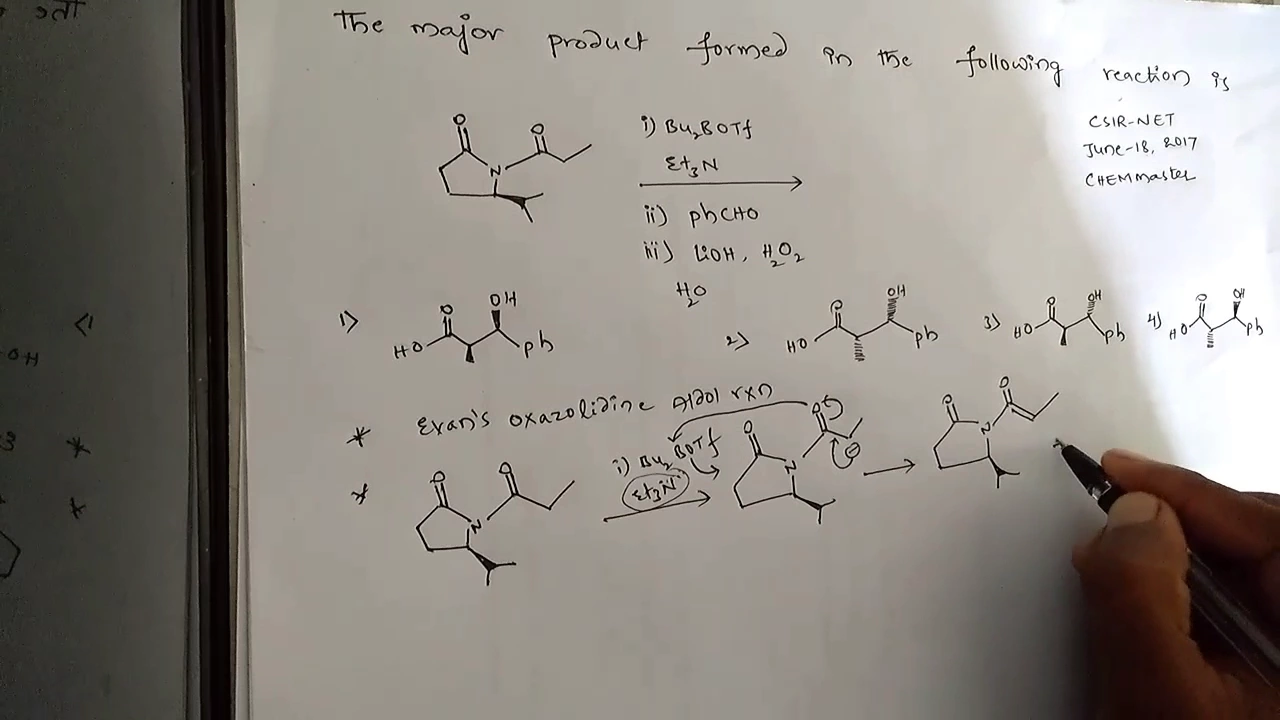 The major product formed in the following reaction is
CSIR-NET
June-18, 2017
CHEMmaster
O
O
N
i) Bu2BOTf
Et3N
ii) phCHO
iii) LiOH, H2O2
H2O
1)
O
OH
HO
ph
2)
O
OH
HO
ph
3)
O
OH
HO
ph
4)
O
OH
HO
ph
* Evan's oxazolidine Aldol rxn
*
O
O
N
i) Bu2BOTf
Et3N
O
O
N
⊖
O
O
N
OH
3